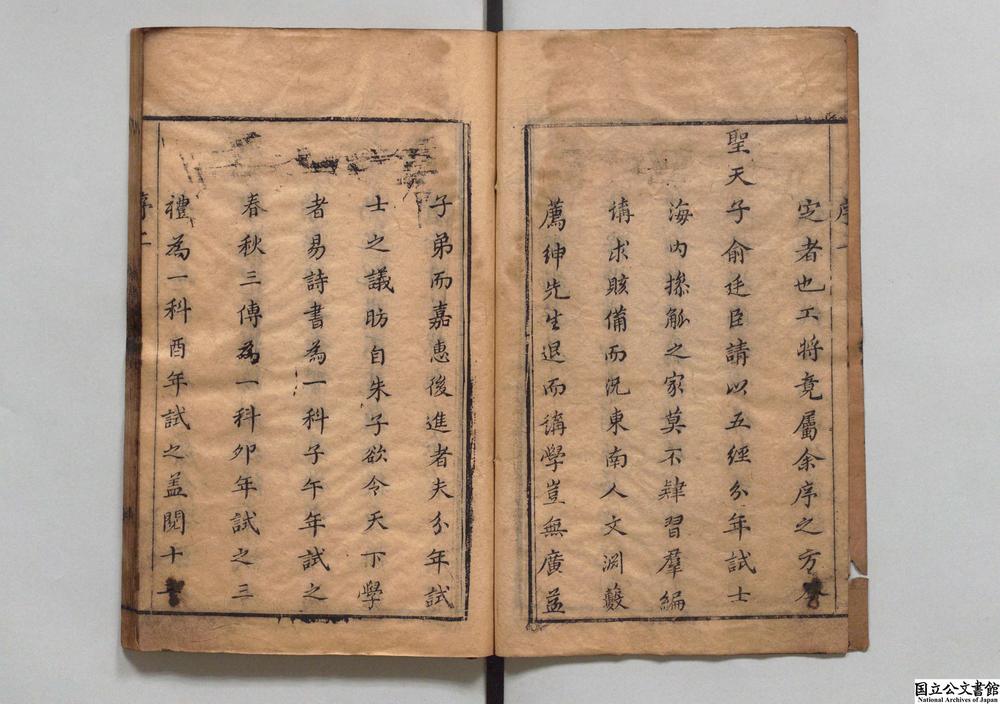 序一
定者也工將竟屬余序之方今
聖天子俞廷臣請以五經分年試士
海內操觚之家莫不肄習羣編
講求賅備而況東南人文淵藪
薦紳先生退而講學豈無廣益
子弟而嘉惠後進者夫分年試
士之議昉自朱子欲令天下學
者易詩書為一科子午年試之
春秋三傳為一科卯年試之三
禮為一科酉年試之盖閱十
序二
国立公文書館
National Archives of Japan